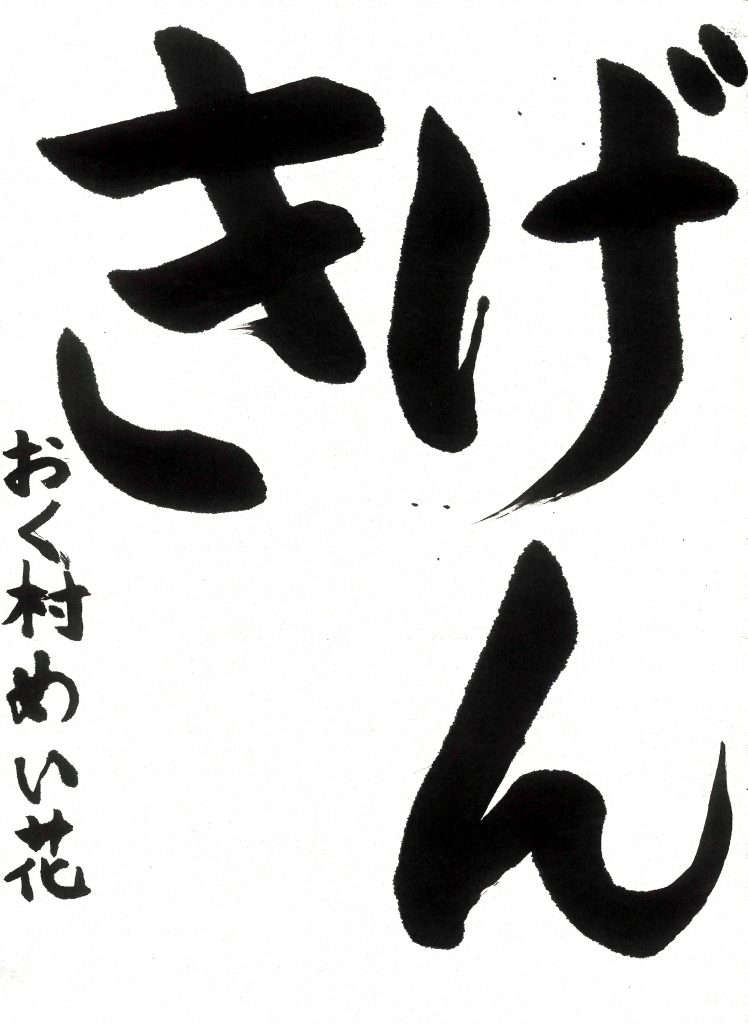 げん
き
おく村めい花